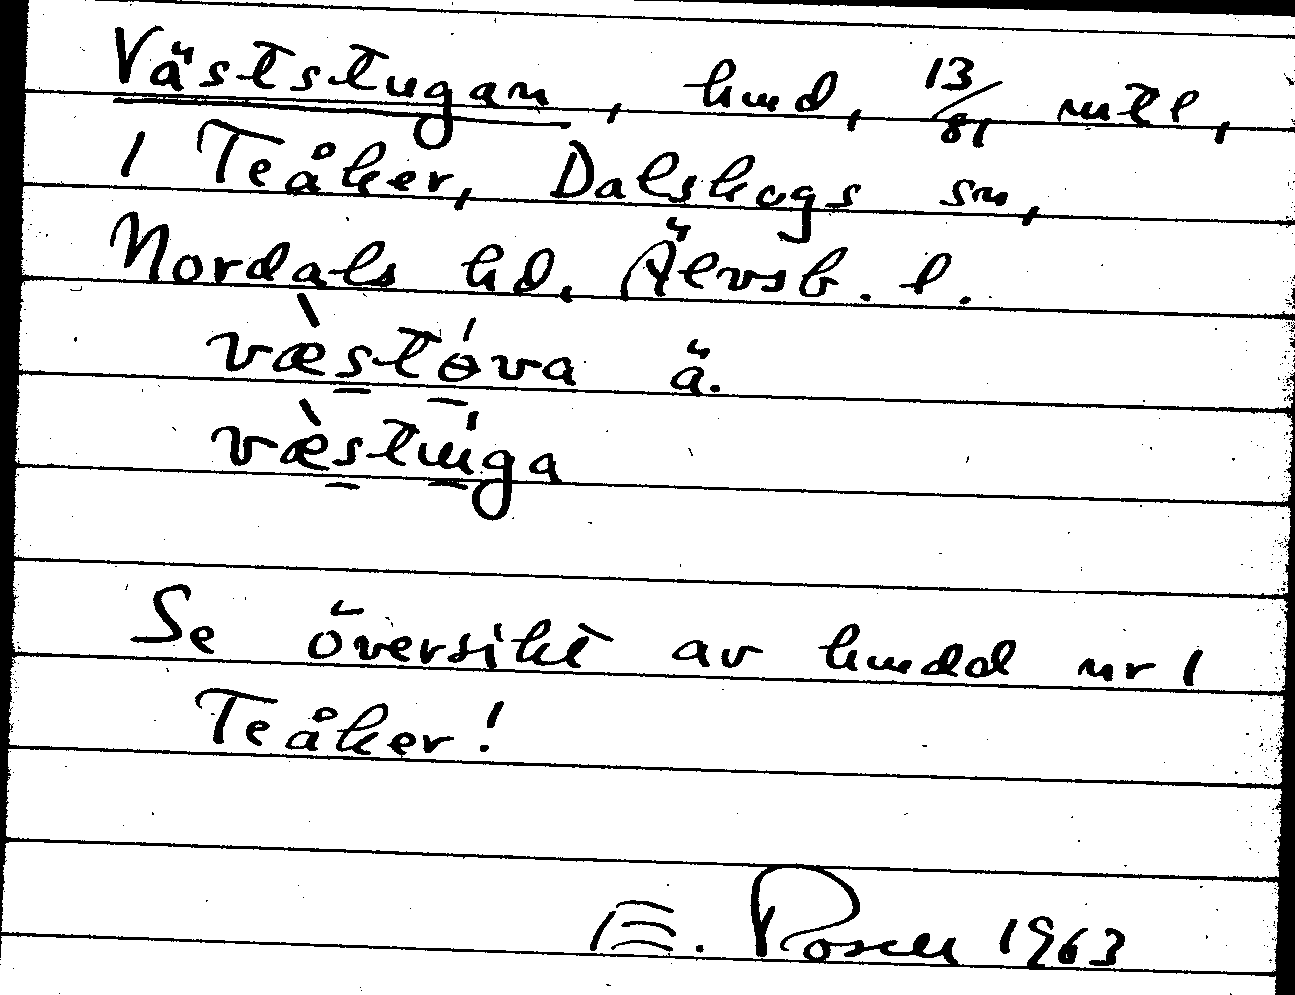 Väststugan, hmd, 13/81 mtl,
1 Teåker, Dalskogs sn,
Nordals hd. Älvsb. l.
væ̀stɵ́va ä.
væ̀stúga
Se översikt av hmdd nr 1
Teåker!
E. Rosell 1963